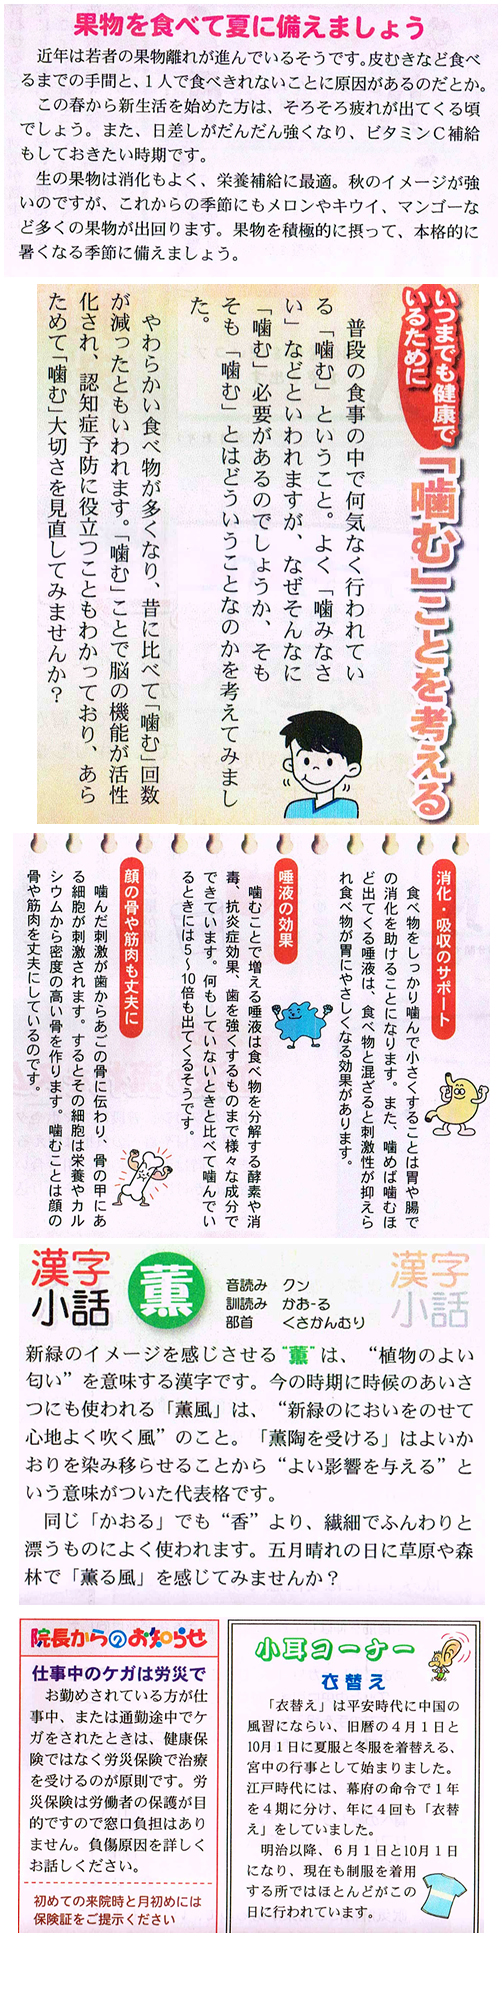 果物を食べて夏に備えましょう
近年は若者の果物離れが進んでいるそうです。皮むきなど食べ
るまでの手間と、１人で食べきれないことに原因があるのだとか。
この春から新生活を始めた方は、そろそろ疲れが出てくる頃
でしょう。また、日差しがだんだん強くなり、ビタミンＣ補給
もしておきたい時期です。
生の果物は消化もよく、栄養補給に最適。秋のイメージが強
いのですが、これからの季節にもメロンやキウイ、マンゴーな
ど多くの果物が出回ります。果物を積極的に摂って、本格的に
暑くなる季節に備えましょう。
いつまでも健康で
いるために
「噛む」ことを考える
普段の食事の中で何気なく行われてい
る「噛む」ということ。よく「噛みなさ
い」などといわれますが、なぜそんなに
「噛む」必要があるのでしょうか、そも
そも「噛む」とはどういうことなのかを考えてみまし
た。
やわらかい食べ物が多くなり、昔に比べて「噛む」回数
が減ったともいわれます。「噛む」ことで脳の機能が活性
化され、認知症予防に役立つこともわかっており、あら
ためて「噛む」大切さを見直してみませんか？
消化・吸収のサポート
食べ物をしっかり噛んで小さくすることは胃や腸で
の消化を助けることになります。また、噛めば噛むほ
ど出てくる唾液は、食べ物と混ざると刺激性が抑えら
れ食べ物が胃にやさしくなる効果があります。
唾液の効果
噛むことで増える唾液は食べ物を分解する酵素や消
毒、抗炎症効果、歯を強くするものまで様々な成分で
できています。何もしていないときと比べて噛んでい
るときには５〜10倍も出てくるそうです。
顔の骨や筋肉も丈夫に
噛んだ刺激が歯からあごの骨に伝わり、骨の中にあ
る細胞が刺激されます。するとその細胞は栄養やカル
シウムから密度の高い骨を作ります。噛むことは顔の
骨や筋肉を丈夫にしているのです。
漢字
小話
薫
音読み　クン
訓読み　かお-る
部首　くさかんむり
漢字
小話
新緑のイメージを感じさせる“薫”は、“植物のよい
匂い”を意味する漢字です。今の時期に時候のあいさ
つにも使われる「薫風」は、“新緑のにおいをのせて
心地よく吹く風”のこと。「薫陶を受ける」はよいか
おりを染み移らせることから“よい影響を与える”と
いう意味がついた代表格です。
同じ「かおる」でも“香”より、繊細でふんわりと
漂うものによく使われます。五月晴れの日に草原や森
林で「薫る風」を感じてみませんか？
院長からのお知らせ
仕事中のケガは労災で
お勤めされている方が仕
事中、または通勤途中でケ
ガをされたときは、健康保
険ではなく労災保険で治療
を受けるのが原則です。労
災保険は労働者の保護が目
的ですので窓口負担はあり
ません。負傷原因を詳しく
お話しください。
初めての来院時と月初めには
保険証をご提示ください
小耳コーナー
衣替え
「衣替え」は平安時代に中国の
風習にならい、旧暦の４月１日と
10月１日に夏服と冬服を着替える、
宮中の行事として始まりました。
江戸時代には、幕府の命令で１年
を４期に分け、年に４回も「衣替
え」をしていました。
明治以降、６月１日と10月１日
になり、現在も制服を着用
する所ではほとんどがこの
日に行われています。